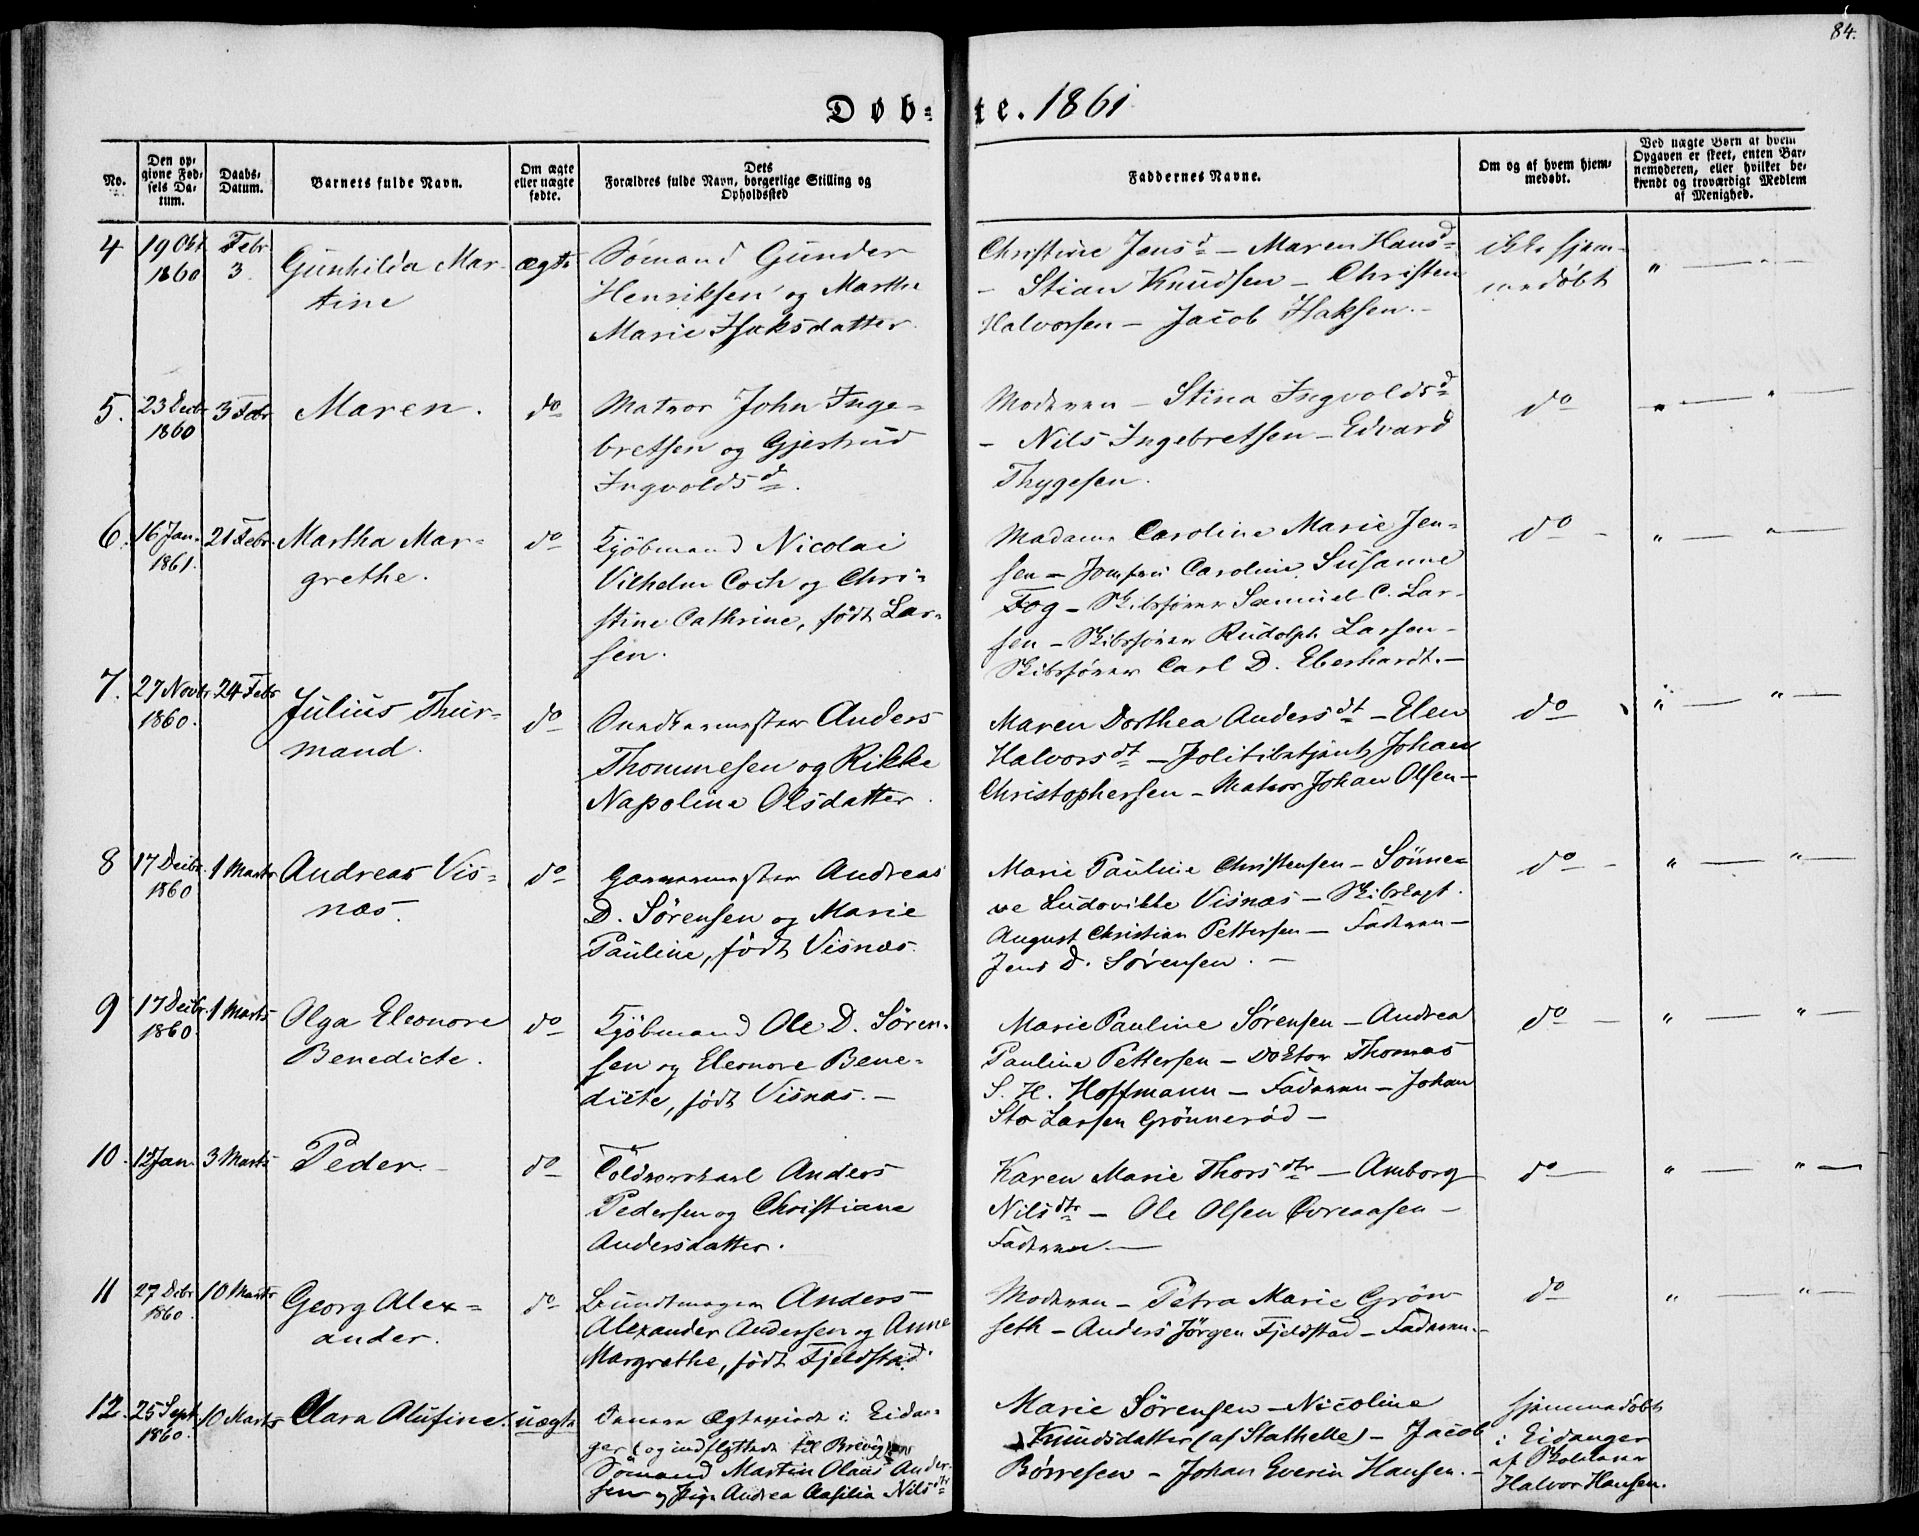 84.
Døb= te. 1861
No.
Den op=
givne Fød=
sels Da=
tum.
Daabs=
Datum.
Barnets fulde Navn.
Om ægte
eller uægte
fødte.
Dets
Forældres fulde Navn, borgerlige Stilling og
Opholdssted
Faddernes Navne.
Om og af hvem hjem=
medøbt.
Ved uægte Børn af hvem
Opgaven er skeet, enten Bar=
nemoderen, eller hvilket be=
kjendt og troværdigt Medlem
af Menighed.
4
19 Okt
1860
Febr
3.
Gunhilda Mar-
tine
ægte
Sømand Gunder
Henriksen og Marthe
Marie Isaksdatter.
Christine Jensd - Maren Hansd
- Stian Knudsen - Christen
Halvorsen - Jacob Isaksen. -
ikke hjem-
medøbt
" — " —
5.
23 Decbr
1860
3 Febr
Maren.
do
Matros John Inge-
bretsen og Gjertrud
Ingvoldsd.
Moderen - Stina Ingvoldsd
- Nils Ingebretsen - Edvard
Thygesen.
do
" — " —
6.
16 Jan.
1861.
21 Febr
Martha Mar-
grethe.
do
Kjøbmand Nicolai
Vilhelm Coch og Chri-
stine Cathrine, født Lar-
sen.
Madame Caroline Marie Jen-
sen - Jomfru Caroline Susanne
Fog - Skibsfører Samuel C. Lar-
sen - Skibsfører Rudolph Larsen -
Skibsfører Carl D. Eberhardt. -
do -
" — " —
7.
27 Novbr
1860.
24 Febr
Julius Thur-
mand.
do
Anders
Thommesen og Rikke
Napoline Olsdatter.
Maren Dorthea Andersdt - Elen
Halvorsdt - Politibetjent Johan
Christophersen - Matros Johan Olsen -
do
" — " —
8
17 Decbr
1860
1 Marts
Andreas Vis-
næs.
do
Garvermester Andreas
D. Sørensen og Marie
Pauline, født Visnæs.
Marie Pauline Christensen - Sønne-
ve Ludovikke Visnæs - Skibskapt.
August Christian Pettersen - Faderen -
Jens D. Sørensen. -
do -
" — " —
9
17 Decbr
1860
1 Marts
Olga Eleonore
Benedicte.
do
Kjøbmand Ole D. Søren-
sen og Eleonore Bene-
dicte, født Visnæs. -
Marie Pauline Sørensen - Andrea
Pauline Pettersen - Doktor Thomas
S. H. Hoffmann - Faderen - Johan
Sto Larsen Grønnerød -
do -
" — " —
10.
12 Jan.
3 Marts
Peder. -
do
Toldroerskarl Anders
Pedersen og Christiane
Andersdatter.
Karen Marie Thorsdtr - Amborg
Nilsdtr - Ole Olsen -
Faderen. -
do -
" — " —
11
27 Debr
1860.
10 Marts
Georg Alex-
ander.
do
Bundtmager Anders
Alexander Andersen og Anne
Margrethe, født Fjeldstad.
Moderen - Petra Marie Grøn-
seth - Anders Jørgen Fjeldstad - Faderen. -
do
" — " —
12.
25 Sept
1860.
10 Marts
Clara Alufine.
uægte
Senere Ægteviede i Eidan-
ger (og indflyttede til Brevig)
Sømand Martin Olaus Ander-
sen og Pige Andrea Nilsdtr
Marie Sørensen - Nicoline
Knudsdatter (af Stathelle) - Jacob
Børresen - Johan Everin Hansen. -
hjemmedøbt
i Eidanger
af Skolelærer
Halvor Hansen.